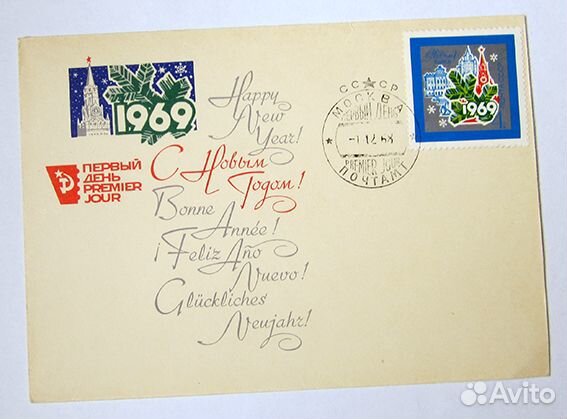 1969
ПЕРВЫЙ
ДЕНЬ
PREMIER
JOUR
Happy
New
Year!
С Новым
Годом!
Bonne
Année!
¡ Feliz Año
Nuevo!
Glückliches
Neujahr!
СС СР
МОСКВА
ПЕРВЫЙ ДЕНЬ
-1 12 68
PREMIER JOUR
ПОЧТАМТ
1969
Avito